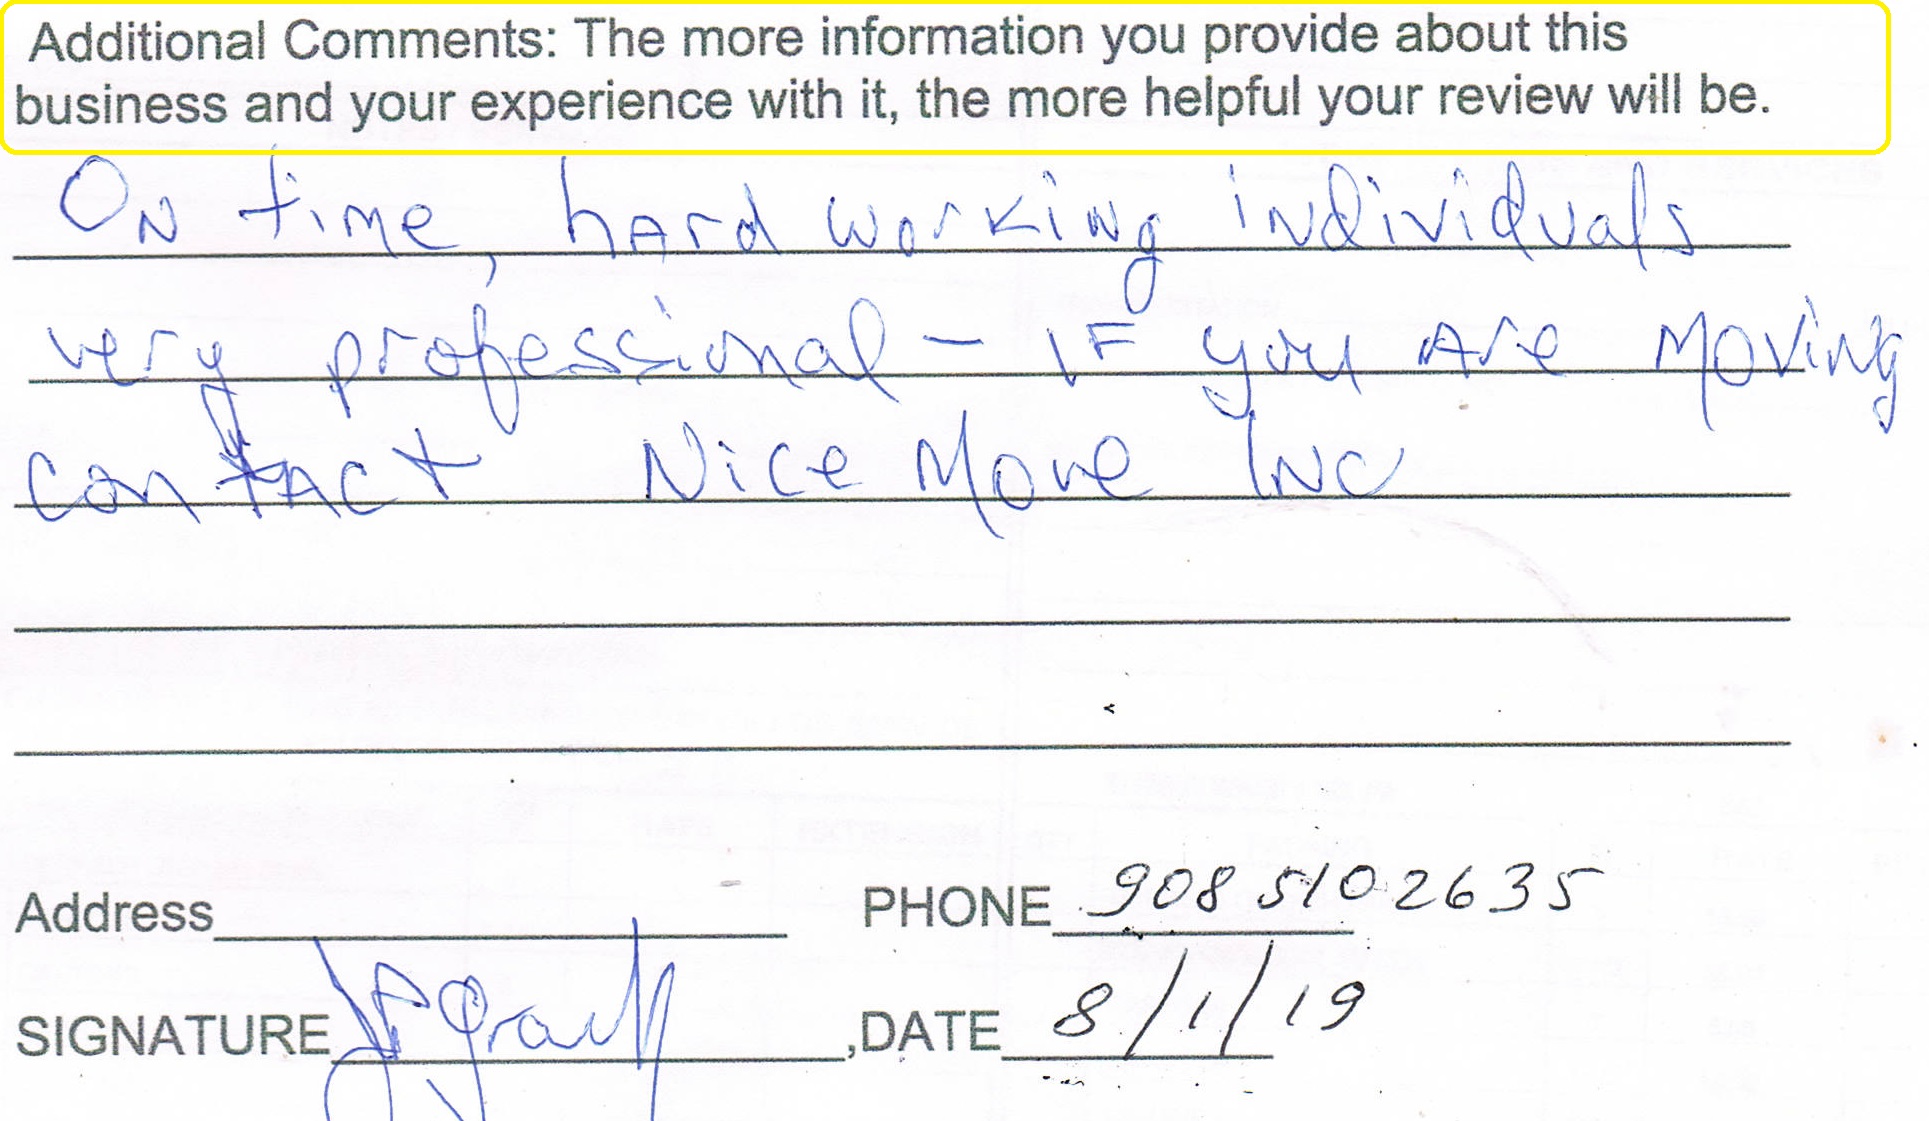 Additional Comments: The more information you provide about this
business and your experience with it, the more helpful your review will be.
On time, hard working individuals
very professional - IF you Are Moving
contact Nice Move Inc
Address PHONE 9085102635
SIGNATURE ,DATE 8/1/19